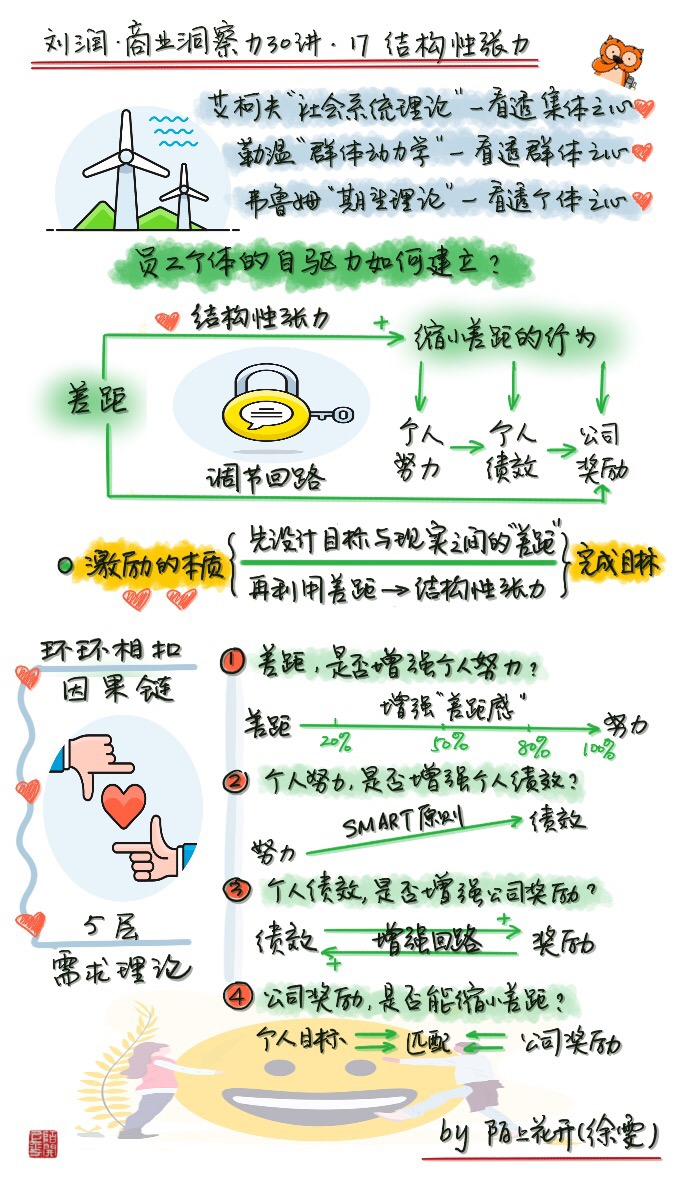 刘润·商业洞察力30讲·17 结构性张力
艾柯夫"社会系统理论"—看透集体之心
勒温"群体动力学"—看透群体之心
弗鲁姆"期望理论"—看透个体之心
员工个体的自驱力如何建立?
结构性张力 +
缩小差距的行为
差距
个人努力
个人绩效
公司奖励
调节回路
激励的本质
先设计目标与现实之间的"差距"
再利用差距→结构性张力
完成目标
环环相扣
因果链
5层
需求理论
① 差距,是否增强个人努力?
差距 增强"差距感" 努力
20% 50% 80% 100%
② 个人努力,是否增强个人绩效?
努力 SMART原则 绩效
③ 个人绩效,是否增强公司奖励?
绩效 + 增强回路 + 奖励
④ 公司奖励,是否能缩小差距?
个人目标 匹配 公司奖励
by 陌上花开(徐雯)